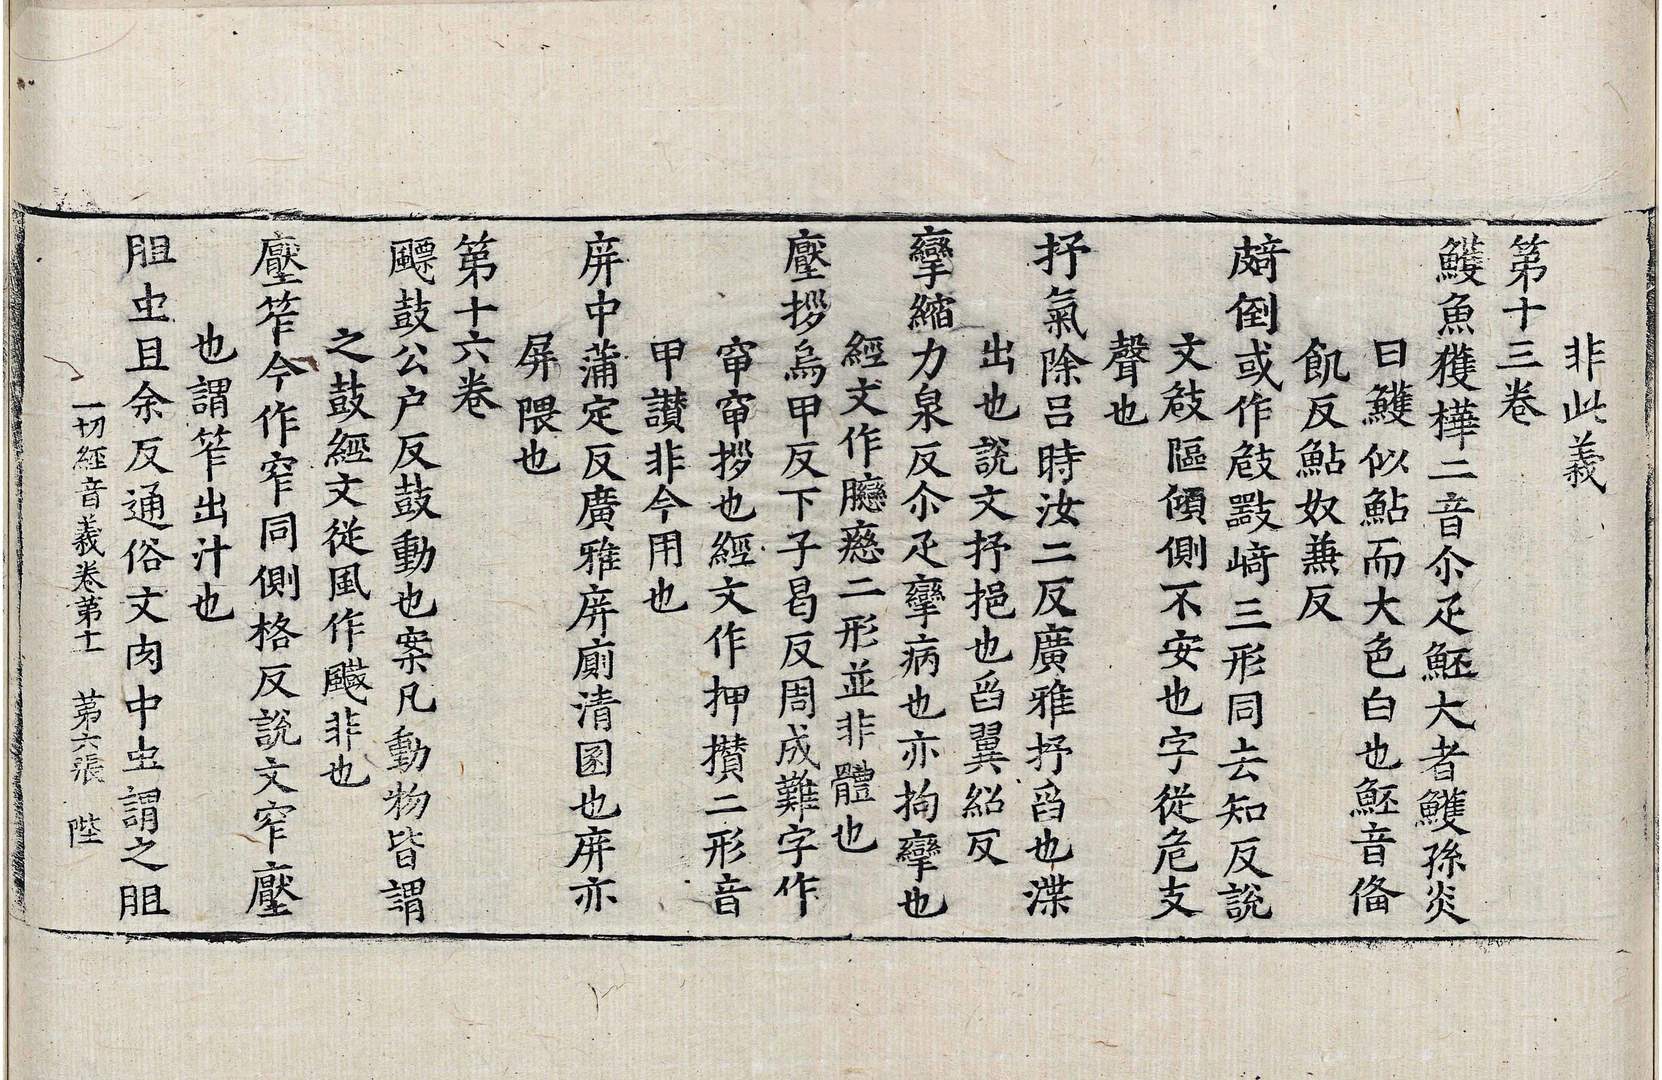 非此義
第十三卷
鱯魚獲樺二音尒疋魾大者鱯孫炎
曰鱯似鮎而大色白也魾音俻
飢反鮎奴蒹反
㩻倒或作攲敧﨑三形同去知反說
文攲䧢傾側不安也字從危支
聲也
抒氣除呂時汝二反廣雅抒舀也渫
出也說文抒挹也舀翼紹反
攣縮力泉反尒疋攣病也亦拘攣也
經文作臃癋二形並非體也
壓拶烏甲反下子曷反周成難字作
窜窜拶也經文作押攅二形音
甲讃非今用也
屏中蒲定反廣雅屏廁清圂也屏亦
屏隈也
第十六卷
飄鼓公户反鼓動也案凡動物皆謂
之鼓經文從風作颰非也
壓笮今作窄同側格反說文窄壓
也謂笮出汁也
胆虫且余反通俗文肉中虫謂之胆
一切經音義卷第十一 第六張 陛